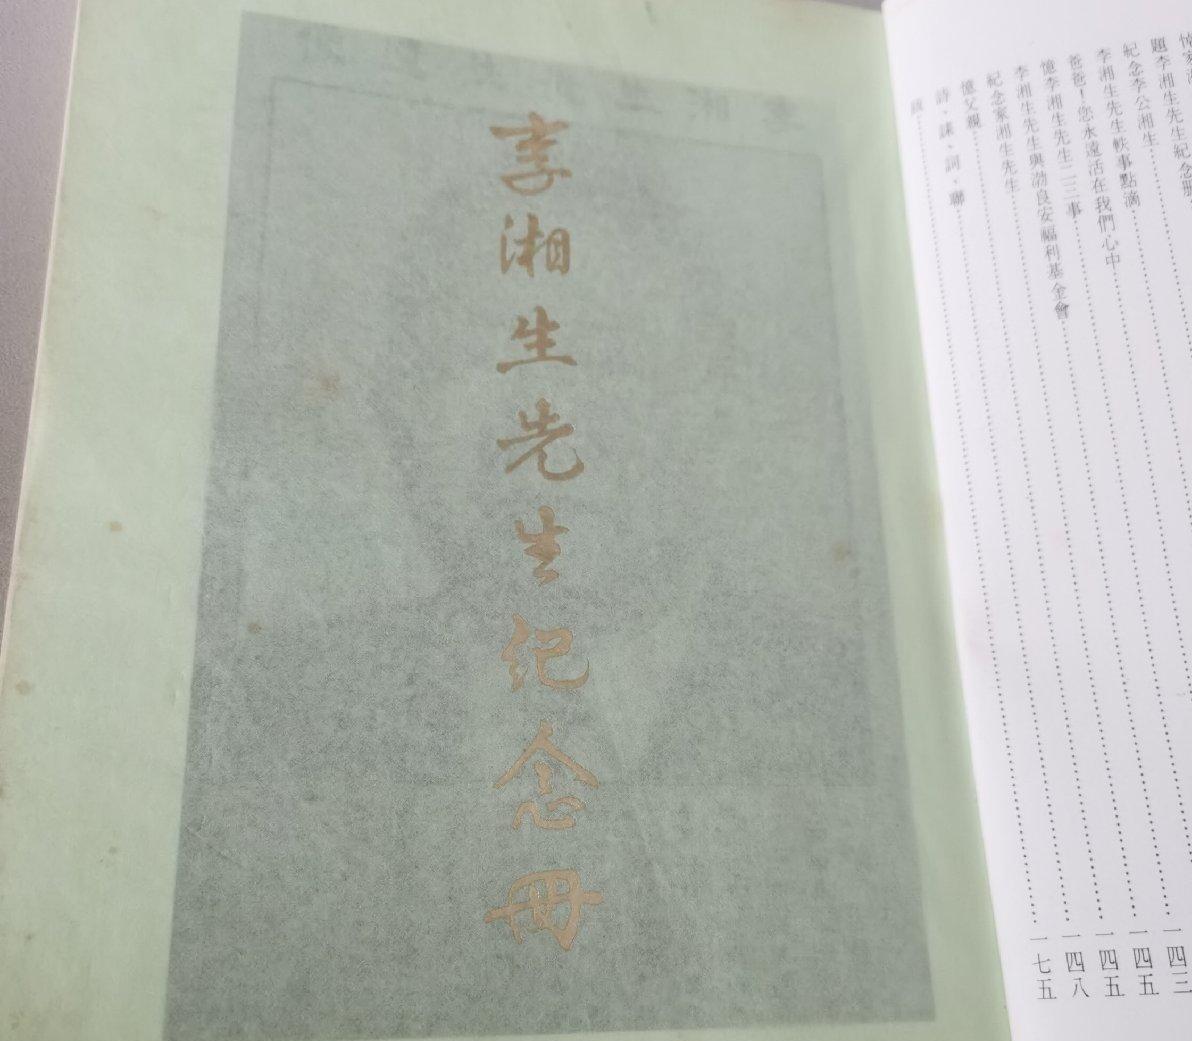 李湘生先生纪念冊
題李湘生先生紀念册
紀念李公湘生
李湘生先生軼事點滴
爸爸！您永遠活在我們心中
憶李湘生先生二三事
李湘生先生與勃良安福利基金會 一四三
紀念家湘生先生 一四五
憶父親 一四五
詩、誄、詞、聯 一四八
跋 一七五